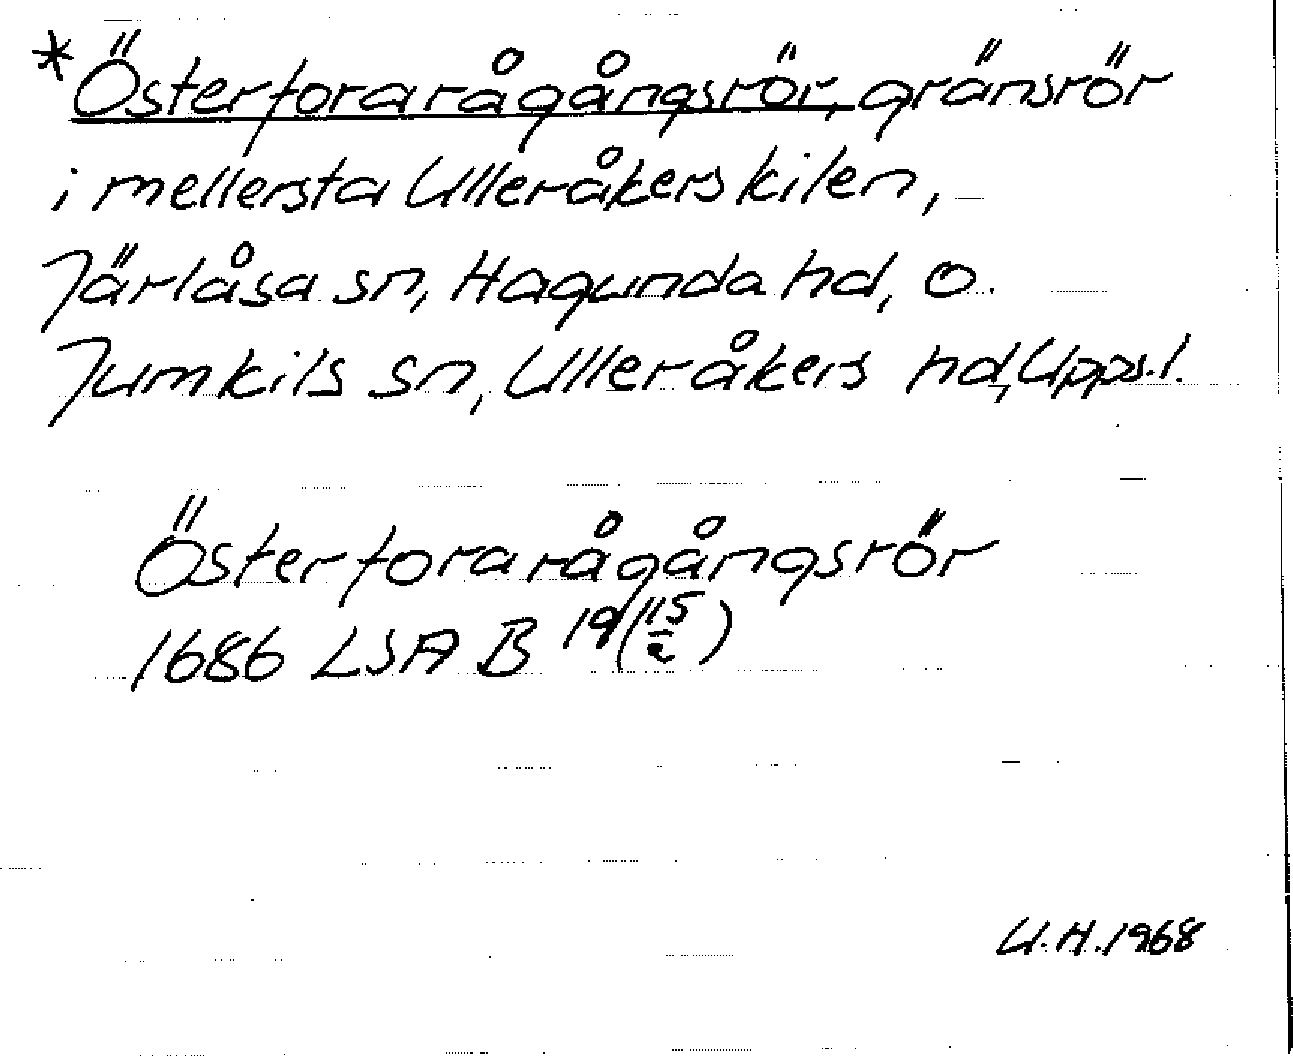 *Österforarågångsrör, gränsrör
i mellersta Ulleråkerskilen,
Järlåsa sn, Hagunda hd, o.
Jumkils sn, Ulleråkers hd, Upps.l.
Österforarågångsrör
1686 LSA B 19(15/2)
U.H.1968